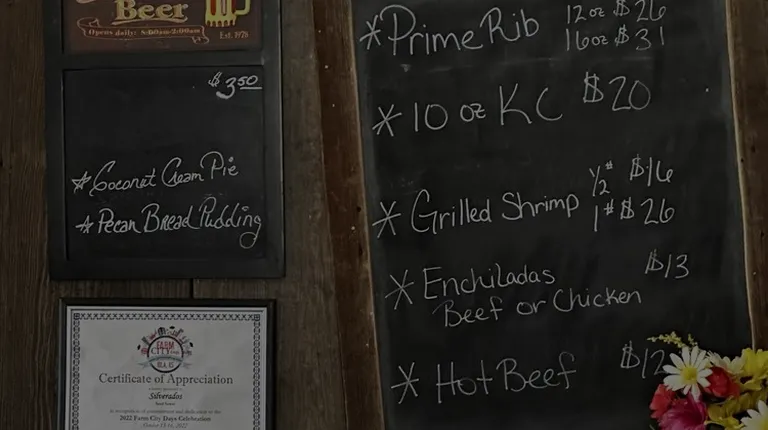 Beer
Opens daily: 8:00am-2:00am
Est. 1978
$3.50
* Coconut Cream Pie
* Pecan Bread Pudding
FARM
CITY
Certificate of Appreciation
Silverados
2022 Farm City Days Celebration
* Prime Rib 12oz $26
16oz $31
* 10 oz KC $20
* Grilled Shrimp 1/2# $16
1# $26
* Enchiladas $13
Beef or Chicken
* Hot Beef $12